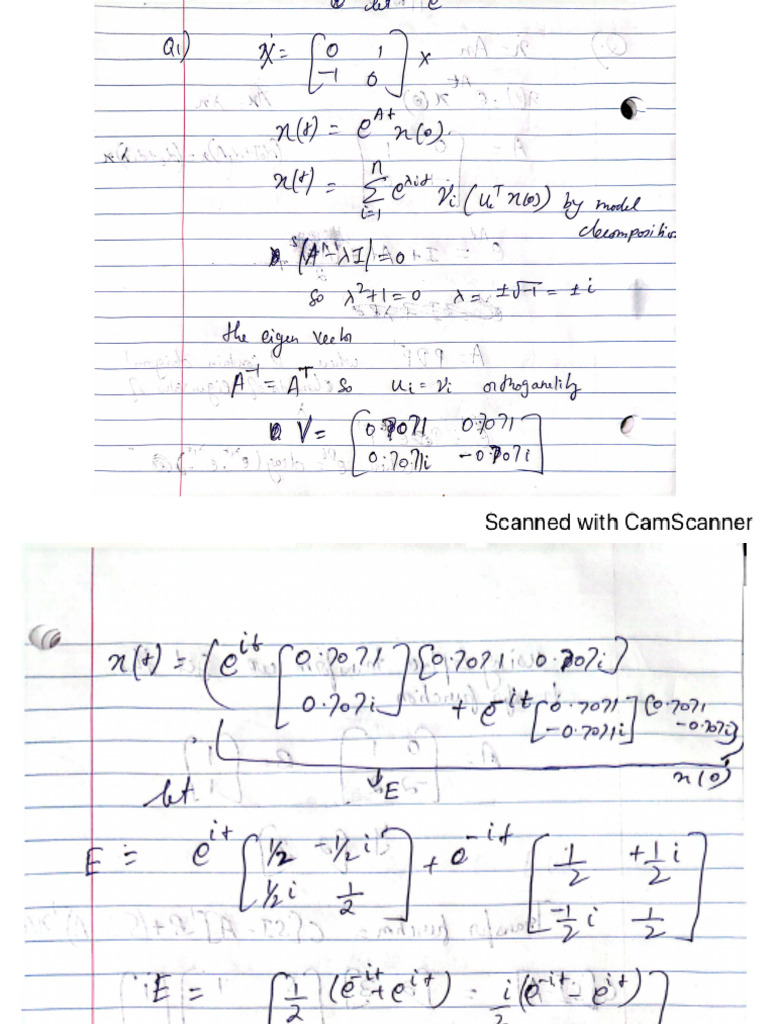 Q1) ẋ = [0 1; -1 0] x
x(t) = e^{At} x(0).
x(t) = Σ_{i=1}^{n} e^{λit} Vi (ui^T x(0)) by model
decomposition
|A - λI| = 0
So λ²+1=0 λ = ±√-1 = ±i
the eigen vector
A^{-1} = A^T So ui = vi orthoganelity
V = [0.7071 0.7071; 0.7071i -0.7071i]
Scanned with CamScanner
x(t) = (e^{it} [0.7071; 0.707i] [0.7071 0.707i]
+ e^{-it} [0.7071; -0.7071i] [0.7071 -0.707i]
x(0)
let E
E = e^{it} [1/2 -1/2i; 1/2i 1/2] + e^{-it} [1/2 +1/2i; -1/2i 1/2]
E = [1/2 (e^{-it}+e^{it}) i/2 (e^{-it} - e^{it})]